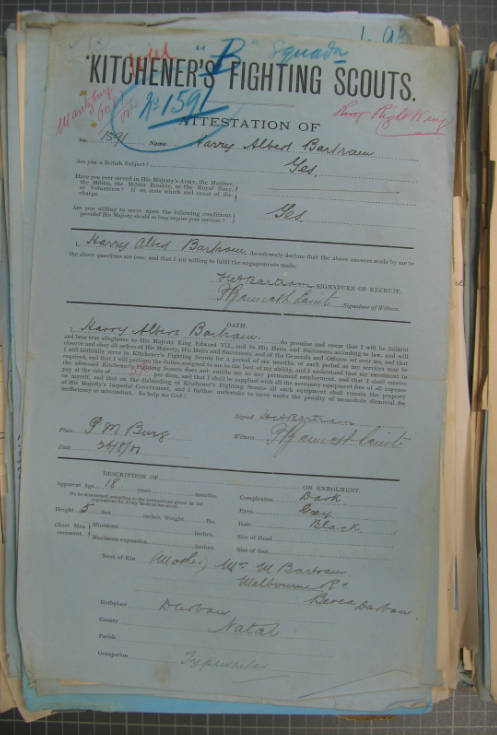 "B" Squadn
KITCHENER'S FIGHTING SCOUTS.
No 1591
ATTESTATION OF
No. 1591 Name Harry Albert Bartram
Are you a British Subject? Yes.
Have you ever served in His Majesty's Army, the Marines,
the Militia, the Militia Reserve, or the Royal Navy,
or Volunteers? If so state which and cause of dis-
charge.
Are you willing to serve upon the following conditions
provided His Majesty should so long require your services? Yes.
I, Harry Albert Bartram, do solemnly declare that the above answers made by me to
the above questions are true, and that I am willing to fulfil the engagements made.
HABartram SIGNATURE OF RECRUIT.
Signature of Witness.
OATH.
I, Harry Albert Bartram do promise and swear that I will be faithful
and bear true allegiance to His Majesty King Edward VII., and to His Heirs and Successors according to law, and will
observe and obey all orders of His Majesty, His Heirs and Successors, and of the Generals and Officers set over me, and that
I will faithfully serve in Kitchener's Fighting Scouts for a period of six months, or such period as my services may be
required, and that I will perform the duties assigned to me to the best of my ability, and I understand that my enrolment in
Kitchener's Fighting Scouts does not entitle me to any permanent employment, and that I shall receive
pay at the rate of 5/- per diem, and that I shall be supplied with all the necessary equipment free of all expense
to myself, and that on the disbanding of Kitchener's Fighting Scouts all such equipment shall remain the property
of His Majesty's Imperial Government, and I further undertake to serve under the penalty of immediate dismissal for
inefficiency or misconduct. So help me God!
Signed HABartram
Place P M Burg
Witness
Date
DESCRIPTION OF
ON ENROLMENT.
Apparent Age 18 years months.
Complexion Dark
Height 5 feet inches. Weight lbs.
Eyes Grey
Hair Black
Chest Mea-
surement.
Minimum inches.
Size of Head
Maximum expansion inches.
Size of feet
Next of Kin (Mother) Mrs M Bartram
Melbourne Rd
Berea Durban
Birthplace Durban
County Natal
Parish
Occupation Typewriter